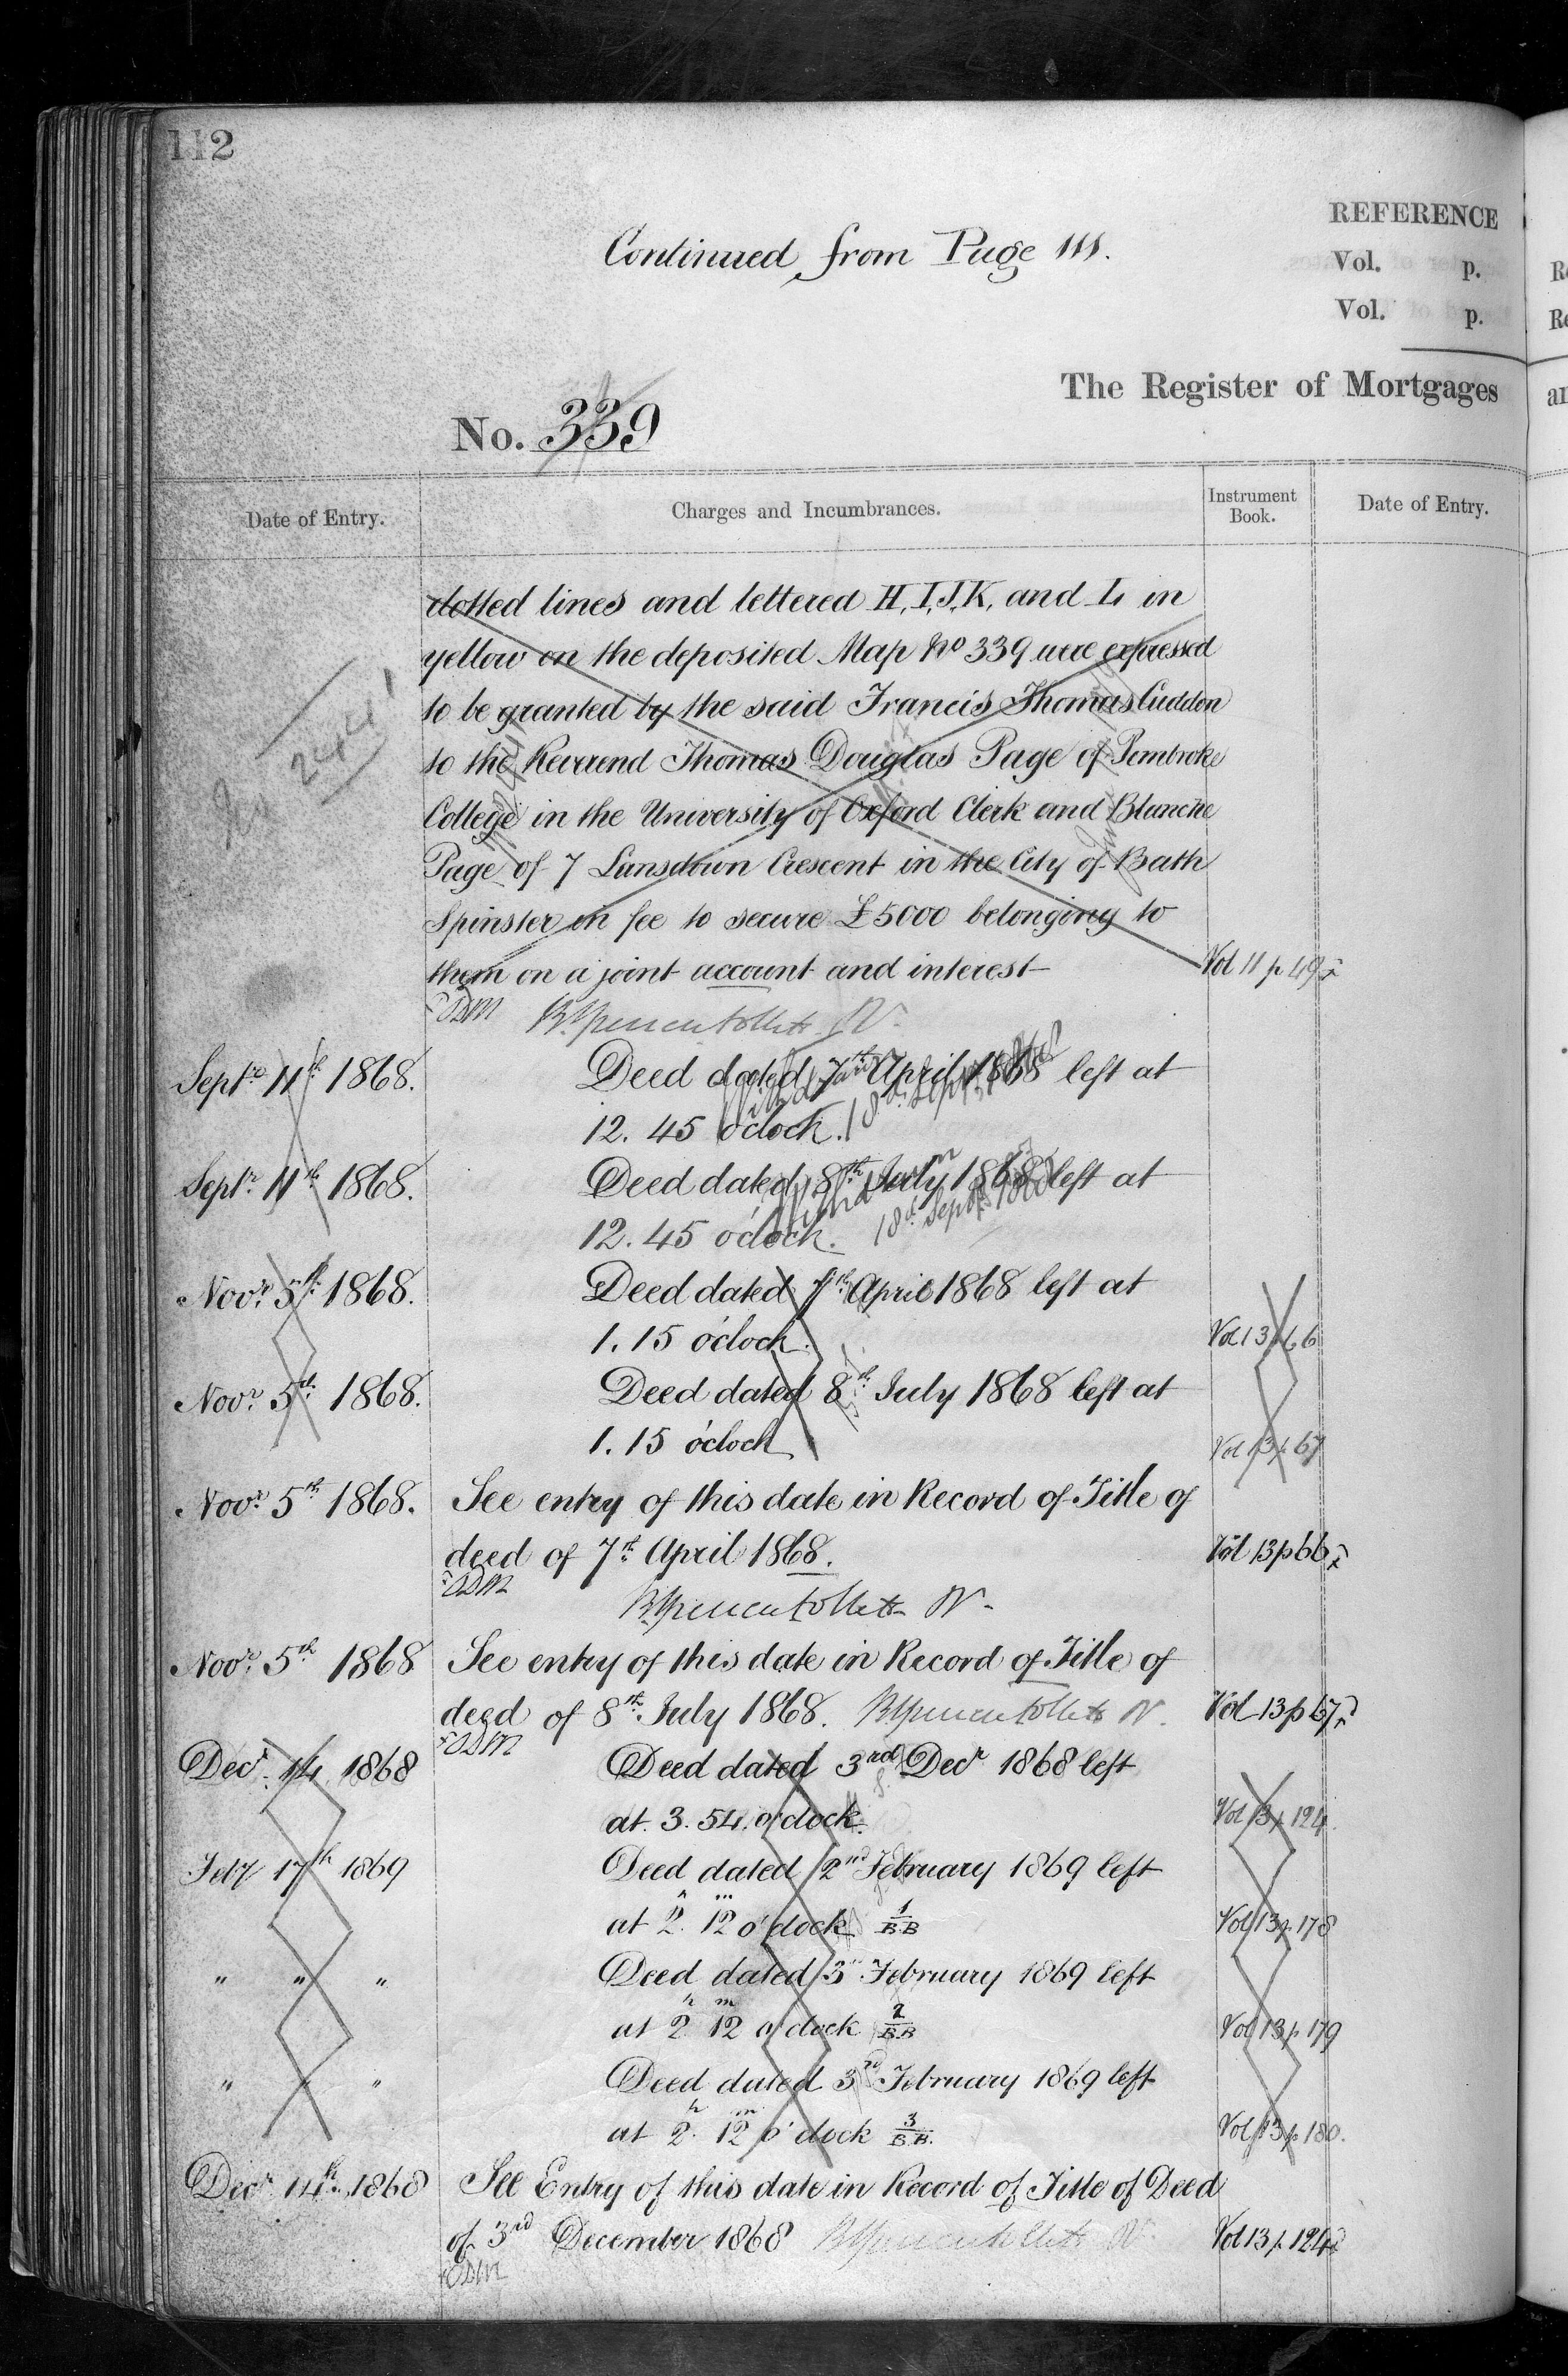 112
REFERENCE
Continued from Page 111.
Vol. p.
Vol. p.
The Register of Mortgages
No. 339
Date of Entry.
Charges and Incumbrances.
Instrument Book.
Date of Entry.
dotted lines and lettered H, I, J, K, and L in
yellow on the deposited Map No 339 were expressed
to be granted by the said Francis Thomas Cuddon
to the Reverend Thomas Douglas Page of Pembroke
College in the University of Oxford Clerk and Blanche
Page of 7 Lansdown Crescent in the City of Bath
Spinster in fee to secure £5000 belonging to
them on a joint account and interest Vol 11 p 49
Septr 11th 1868. Deed dated 7th April 1868 left at
Withdrawn 18th Septr 1868
12. 45 o'clock.
Septr 11th 1868. Deed dated 8th July 1868 left at
Withdrawn 18th Septr 1868
12. 45 o'clock.
Novr 5th 1868. Deed dated 7th April 1868 left at
1. 15 o'clock. Vol 13 p 66
Novr 5th 1868. Deed dated 8th July 1868 left at
1. 15 o'clock Vol 13 p 67
Novr 5th 1868. See entry of this date in Record of Title of
deed of 7th April 1868. Vol 13 p 66
Novr 5th 1868 See entry of this date in Record of Title of
deed of 8th July 1868. Vol 13 p 67
Decr 14 1868 Deed dated 3rd Decr 1868 left
at 3. 54. o'clock. Vol 13 p 124.
Feby 17th 1869 Deed dated 2nd February 1869 left
at 2h 12m o'clock 1/BB Vol 13 p 178
" " " Deed dated 3rd February 1869 left
at 2h 12m o'clock 2/BB Vol 13 p 179
" " " Deed dated 3rd February 1869 left
at 2h 12m o'clock 3/B.B. Vol 13 p 180.
Decr 14th 1868 See Entry of this date in Record of Title of Deed
of 3rd December 1868 Vol 13 p 124